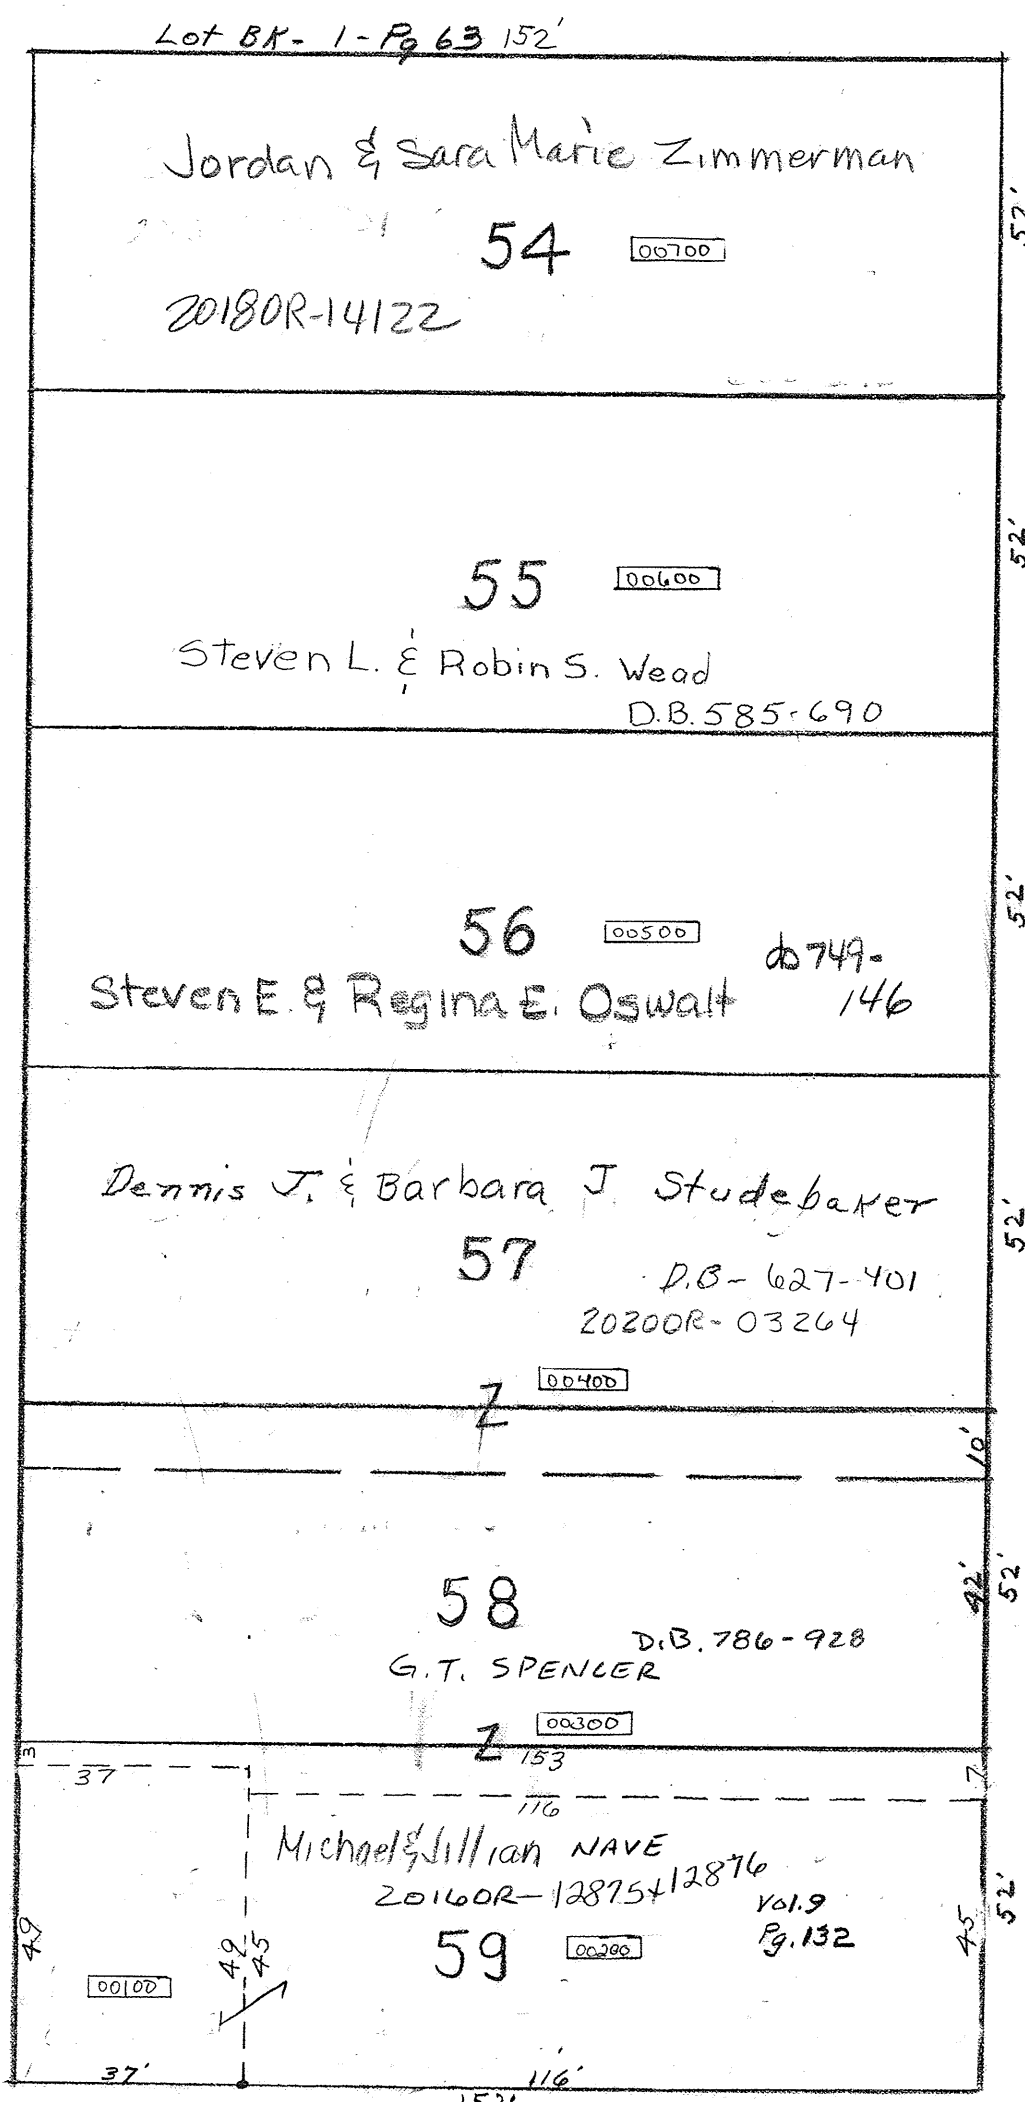 Lot BK- 1-Pg 63 152'
Jordan & Sara Marie Zimmerman
52'
54 00700
20180R-14122
52'
55 00600
Steven L. & Robin S. Wead
D.B. 585-690
52'
56 00500
db 749-
146
Steven E. & Regina E. Oswalt
Dennis J. & Barbara J Studebaker
52'
57
D.B- 627-401
20200R-03264
00400
Z
10'
58
42'
52'
D.B. 786-928
G.T. SPENCER
00300
Z
153
3
37
7
116
Michael & Jillian NAVE
20160R-12875+12876
Vol.9
Pg.132
52'
45
59 00200
49
49
45
00100
37'
116'